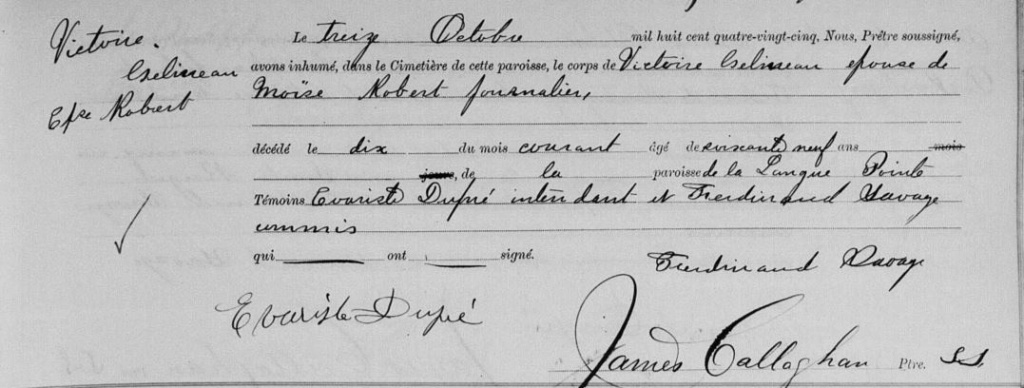 Victoire.
Gelineau
Epse Robert
Le treize Octobre mil huit cent quatre-vingt-cinq. Nous, Prêtre soussigné,
avons inhumé, dans le Cimetière de cette paroisse, le corps de Victoire Gelineau epouse de
Moïse Robert journalier,
décédé le dix du mois courant âgé de soixante neuf ans mois
jours, de la paroisse de la Longue Pointe
Témoins Evariste Dupré intendant et Ferdinand Savage
commis
qui ont signé.
Ferdinand Savage
Evariste Dupré
James Callaghan Ptre. S.S.